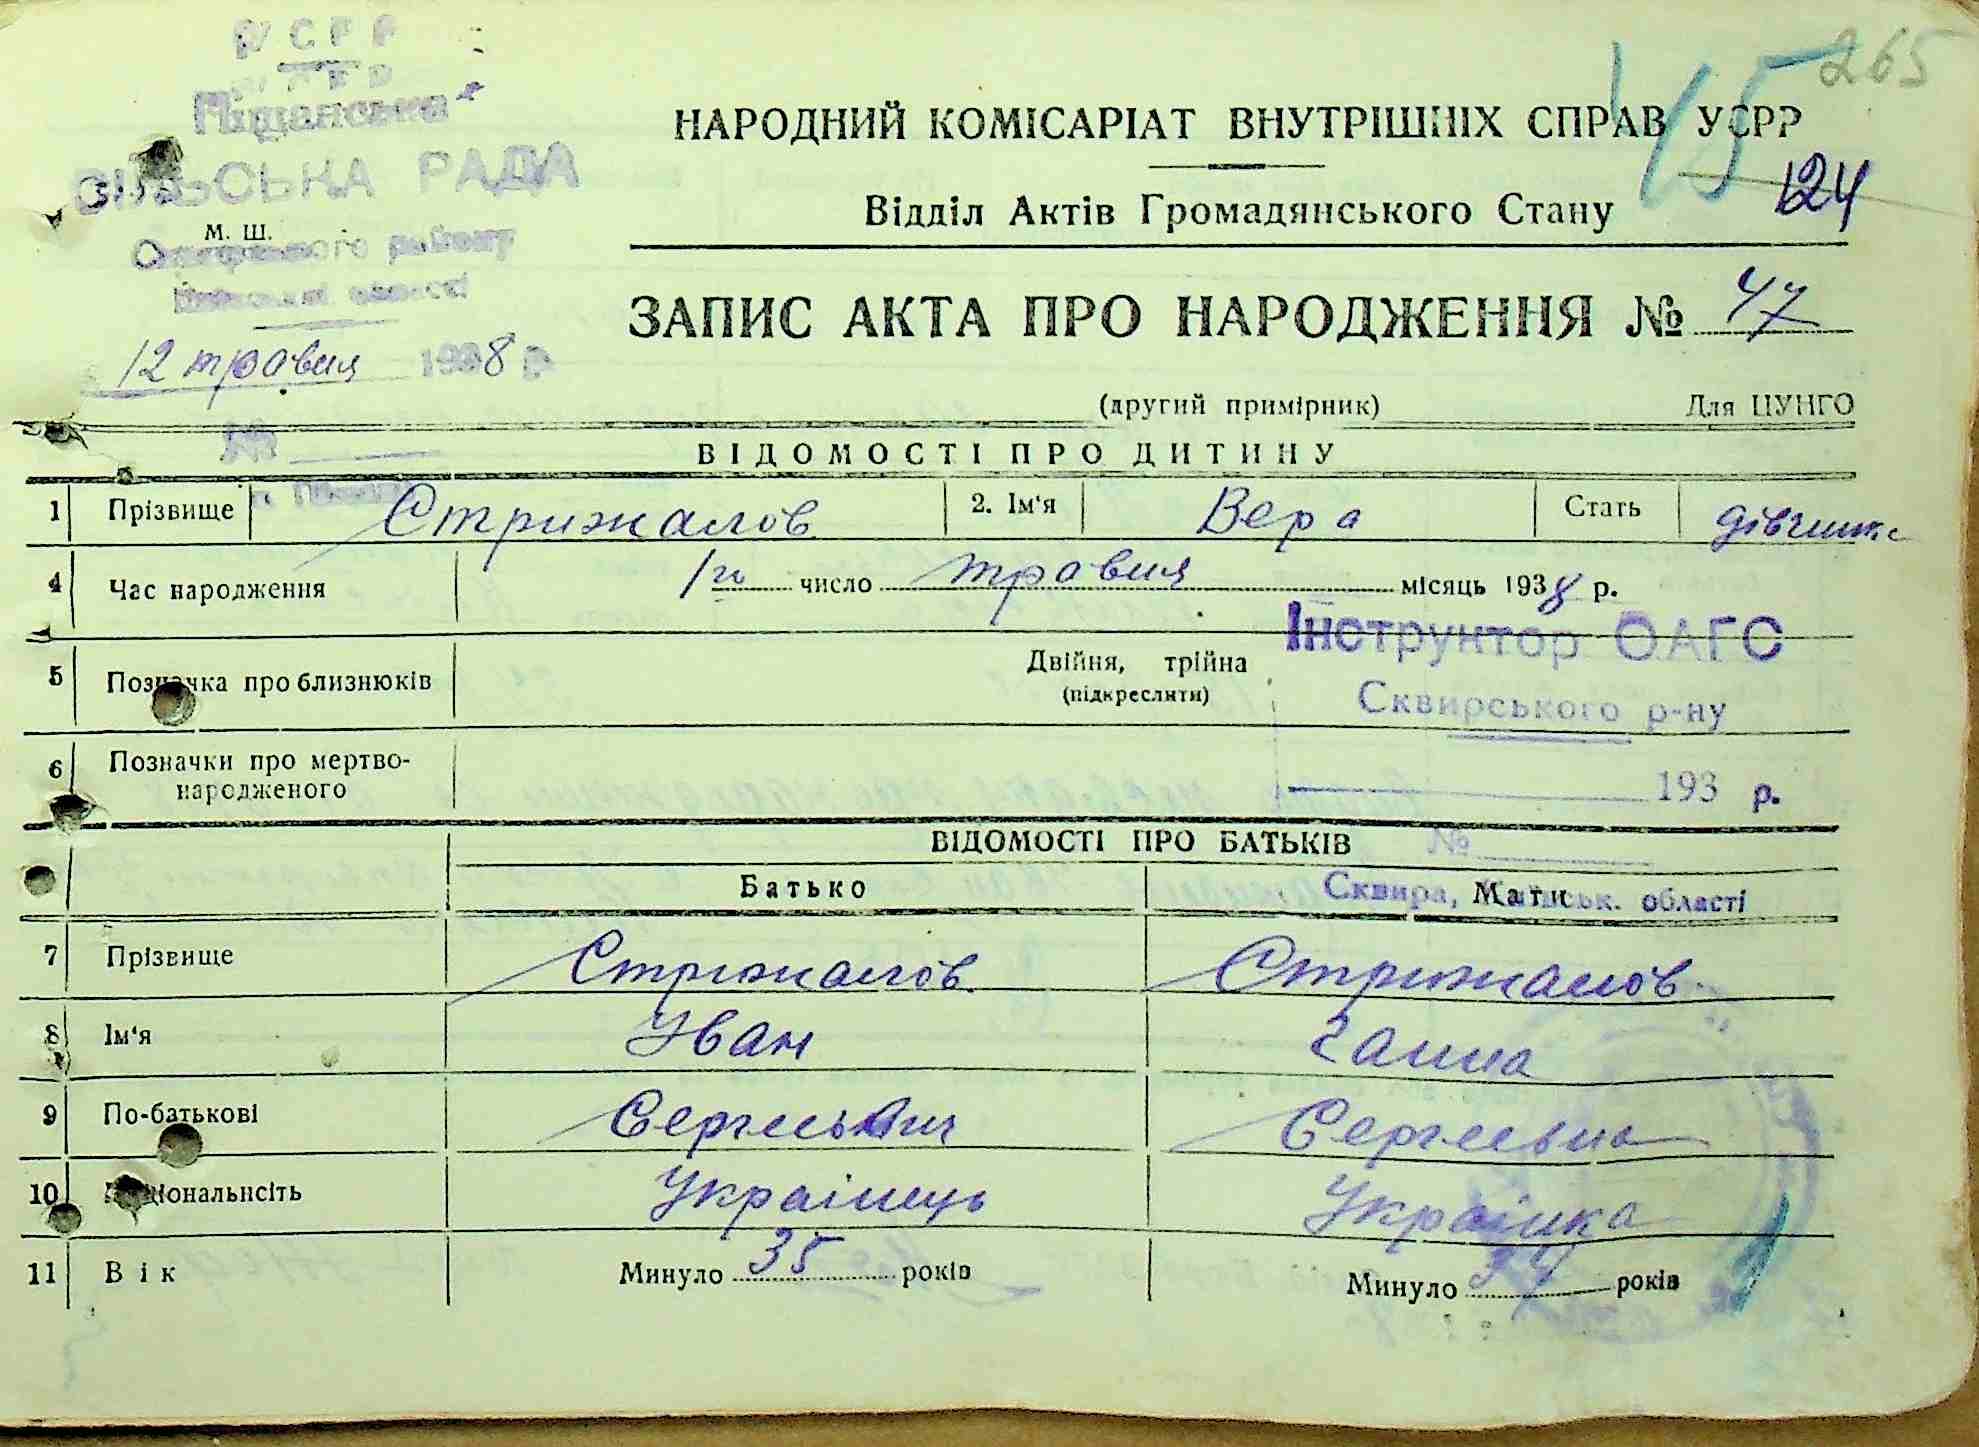 УСРР
Піщанська
СІЛЬСЬКА РАДА
М. Ш.
Сквирського району
Київської області
12 травня 1938 р.
№
265
45
124
НАРОДНИЙ КОМІСАРІАТ ВНУТРІШНІХ СПРАВ УСРР
Відділ Актів Громадянського Стану
ЗАПИС АКТА ПРО НАРОДЖЕННЯ № 47
(другий примірник) Для ЦУНГО
ВІДОМОСТІ ПРО ДИТИНУ
1 Прізвище Стрижалов 2. Ім'я Вера Стать дівчинка
4 Час народження 1го число травня місяць 1938 р.
Інструктор ОАГС
5 Позначка про близнюків Двійня, трійна
(підкреслити)
Сквирського р-ну
6 Позначки про мертво-
народженого
193 р.
ВІДОМОСТІ ПРО БАТЬКІВ №
Батько Мати
Сквира, Київськ. області
7 Прізвище Стрижалов Стрижалов
8 Ім'я Іван Ганна
9 По-батькові Сергеевич Сергеевна
10 Національність Українець Українка
11 Вік Минуло 35 років Минуло 34 років